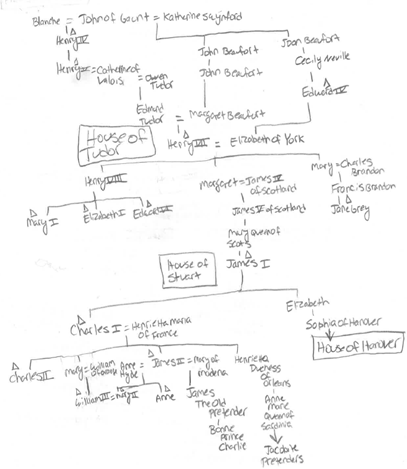 Blanche = John of Gaunt = Katherine Swynford
Henry IV John Beaufort Joan Beaufort
Henry V = Catherine of Valois = Owen Tudor John Beaufort Cecily Neville
Edmund Tudor = Margaret Beaufort Edward IV
House of Tudor
Henry VII = Elizabeth of York
Henry VIII Margaret = James IV of Scotland Mary = Charles Brandon
Francis Brandon
Mary I Elizabeth I Edward VI James V of Scotland Jane Grey
Mary Queen of Scots
House of Stuart
James I
Elizabeth
Charles I = Henrietta Maria of France Sophia of Hanover
House of Hanover
Charles II Mary = William of Orange Anne Hyde = James II = Mary of Modena Henrietta Duchess of Orleans
William III = Mary II Anne James The Old Pretender Anne Marie Queen of Sardinia
Bonnie Prince Charlie Jacobite Pretenders